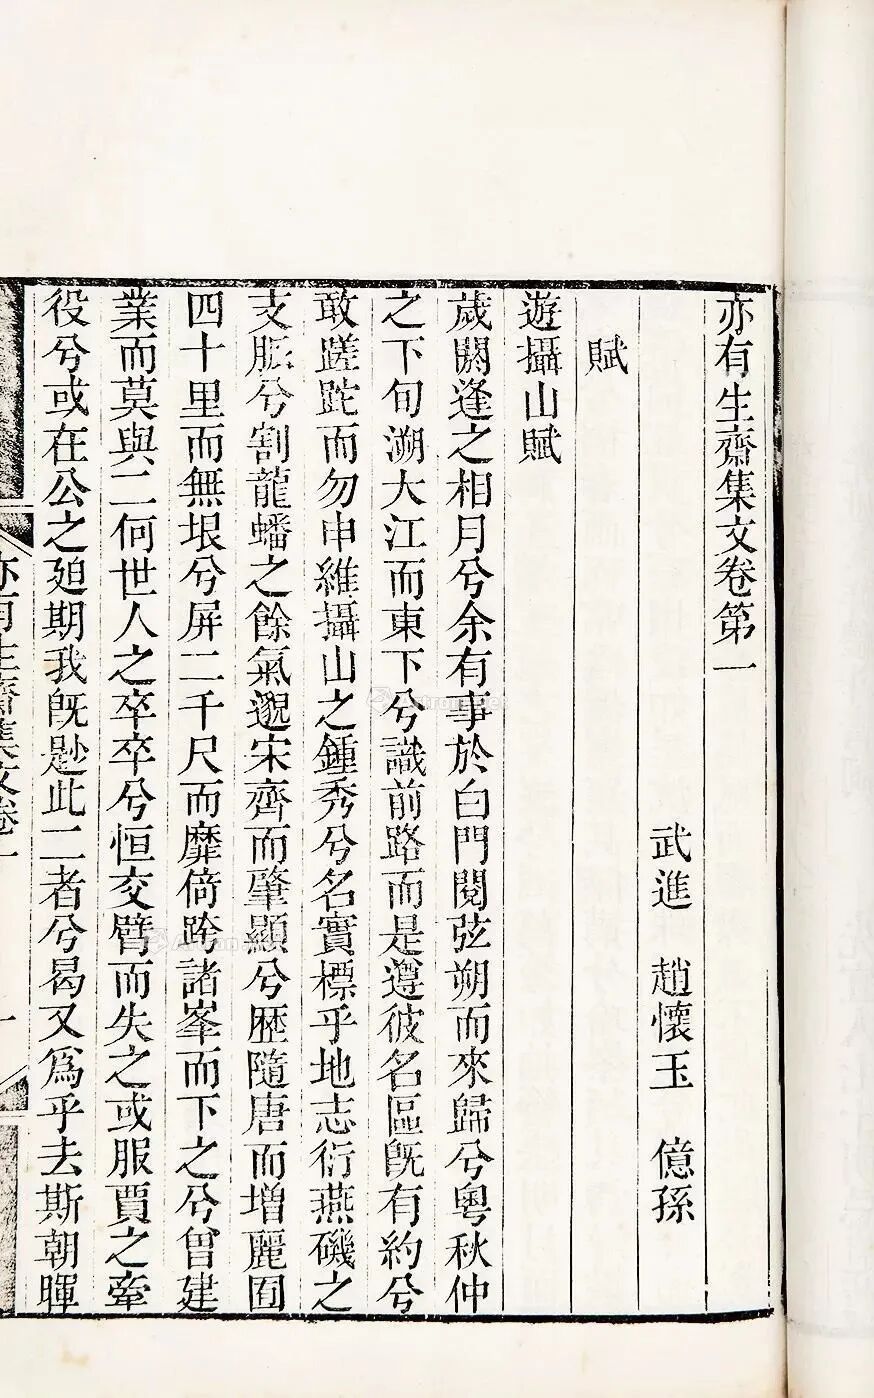 亦有生齋集文卷第一
武進 趙懷玉 億孫
賦
遊攝山賦
歲閼逢之相月兮余有事於白門閱弦朔而來歸兮粵秋仲
之下旬溯大江而東下兮識前路而是遵彼名區旣有約兮
敢蹉跎而勿申維攝山之鍾秀兮名實標乎地志衍燕磯之
支脤兮割龍蟠之餘氣邈宋齊而肇顯兮歷隨唐而增麗囿
四十里而無垠兮屏二千尺而靡倚跨諸峯而下之兮曾建
業而莫與二何世人之卒卒兮恒交臂而失之或服賈之牽
役兮或在公之廹期我旣尟此二者兮曷又爲乎去斯朝暉
亦有生齋集文卷一
一